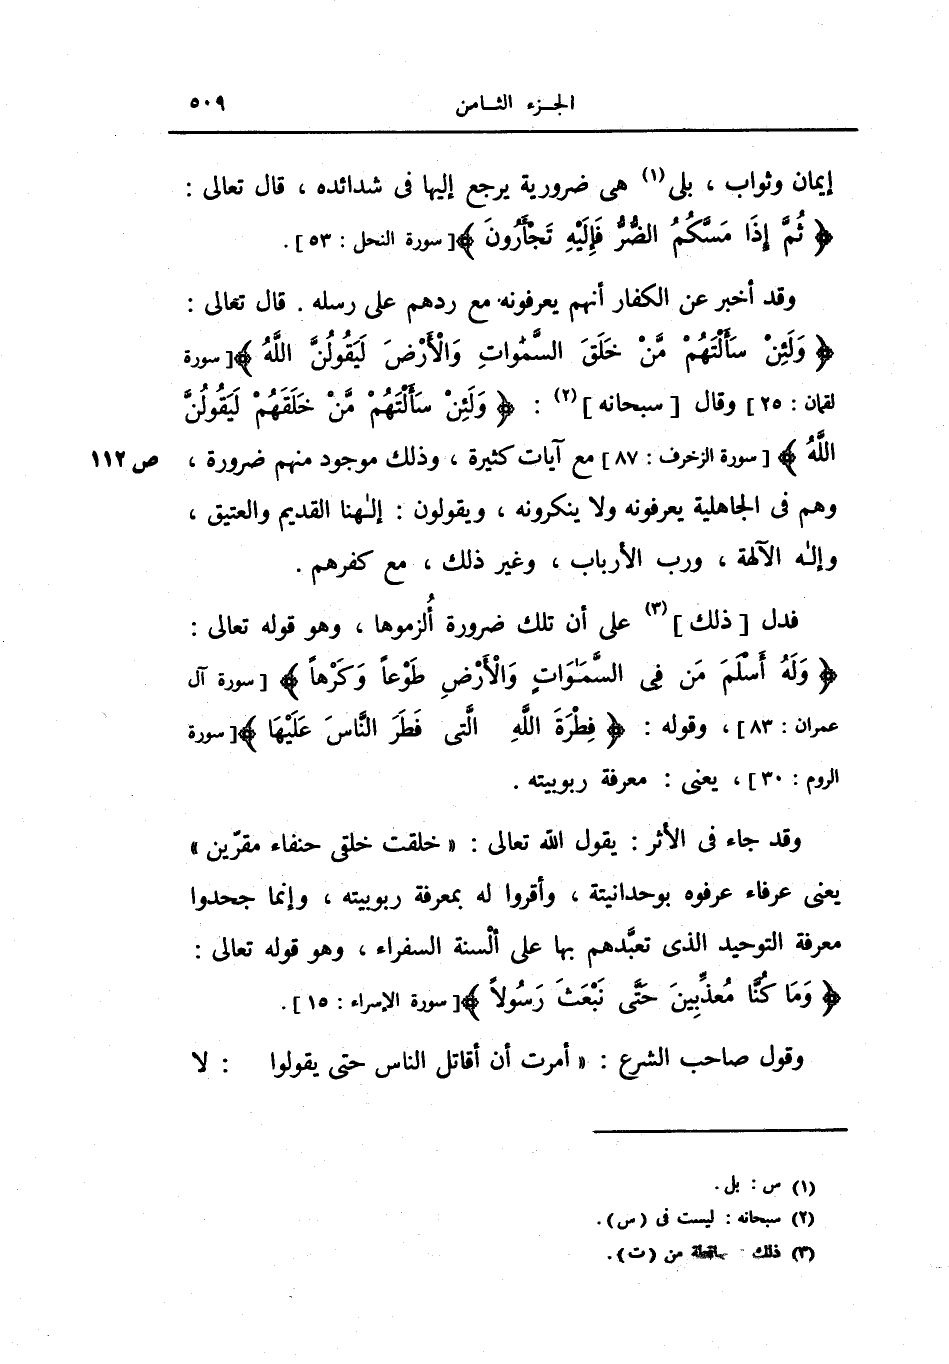 الجزء الثامن ٥٠٩
إيمان وثواب ، بلى(١) هى ضرورية يرجع إليها فى شدائده ، قال تعالى :
﴿ ثُمَّ إِذَا مَسَّكُمُ الضُّرُّ فَإِلَيْهِ تَجْأَرُونَ ﴾[ سورة النحل : ٥٣ ] .
وقد أخبر عن الكفار أنهم يعرفونه مع ردهم على رسله . قال تعالى :
﴿ وَلَئِنْ سَأَلْتَهُمْ مَّنْ خَلَقَ السَّمٰواتِ وَالْأَرْضَ لَيَقُولُنَّ اللَّهُ ﴾[ سورة
لقمان : ٢٥ ] وقال [ سبحانه ](٢) : ﴿ وَلَئِنْ سَأَلْتَهُمْ مَّنْ خَلَقَهُمْ لَيَقُولُنَّ
اللَّهُ ﴾ [ سورة الزخرف : ٨٧ ] مع آيات كثيرة ، وذلك موجود منهم ضرورة ، ص ١١٢
وهم فى الجاهلية يعرفونه ولا ينكرونه ، ويقولون : إلـٰهنا القديم والعتيق ،
وإلـٰه الآلهة ، ورب الأرباب ، وغير ذلك ، مع كفرهم .
فدل [ ذلك ](٣) على أن تلك ضرورة أُلزموها ، وهو قوله تعالى :
﴿ وَلَهُ أَسْلَمَ مَن فِى السَّمَـٰوَاتِ وَالْأَرْضِ طَوْعاً وَكَرْهاً ﴾ [ سورة آل
عمران : ٨٣ ] ، وقوله : ﴿ فِطْرَةَ اللَّهِ الَّتى فَطَرَ النَّاسَ عَلَيْهَا ﴾[ سورة
الروم : ٣٠ ] ، يعنى : معرفة ربوبيته .
وقد جاء فى الأثر : يقول الله تعالى : « خلقت خلقى حنفاء مقرّين »
يعنى عرفاء عرفوه بوحدانيتة ، وأقروا له بمعرفة ربوبيته ، وإنما جحدوا
معرفة التوحيد الذى تعبَّدهم بها على ألْسنة السفراء ، وهو قوله تعالى :
﴿ وَمَا كُنَّا مُعذِّبِينَ حَتَّى نَبْعَثَ رَسُولاً ﴾[ سورة الإسراء : ١٥ ] .
وقول صاحب الشرع : « أمرت أن أقاتل الناس حتى يقولوا : لا
(١) س : بل .
(٢) سبحانه : ليست فى (س) .
(٣) ذلك : ساقطة من (ت) .